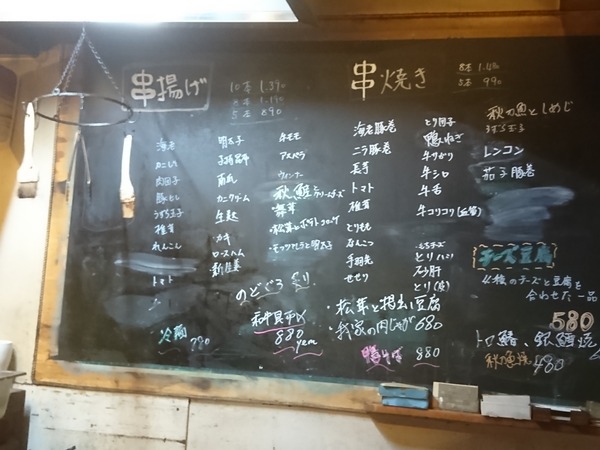 串揚げ
10本 1.390
8本 1.190
5本 890
海老
肉団子
豚とし
うずら玉子
椎茸
れんこん
トマト
明太子
南瓜
カニクリーム
生麩
カキ
ロースハム
新生姜
牛モモ
アスパラ
ウィンナー
秋鮭とクリームチーズ
舞茸
・松茸とポテトコロッケ
・モッツァレラと明太子
冷麺 790
のどぐろ
880 yen
串焼き
8本 1.480
5本 990
海老豚巻
ニラ豚巻
長芋
トマト
椎茸
とりもも
なんこつ
手羽先
せせり
とり団子
鴨ねぎ
牛サガリ
牛シロ
牛舌
牛コリコリ(血管)
もちチーズ
とりハツ
砂肝
とり皮
・松茸と揚出し豆腐
・我家の肉じゃが 680
鴨そば 880
秋の魚としめじ
うずら玉子
レンコン
茄子豚巻
チーズ豆腐
4種のチーズと豆腐を
合わせた一品
580
トロ鯖、銀鮭焼
秋刀魚焼 480